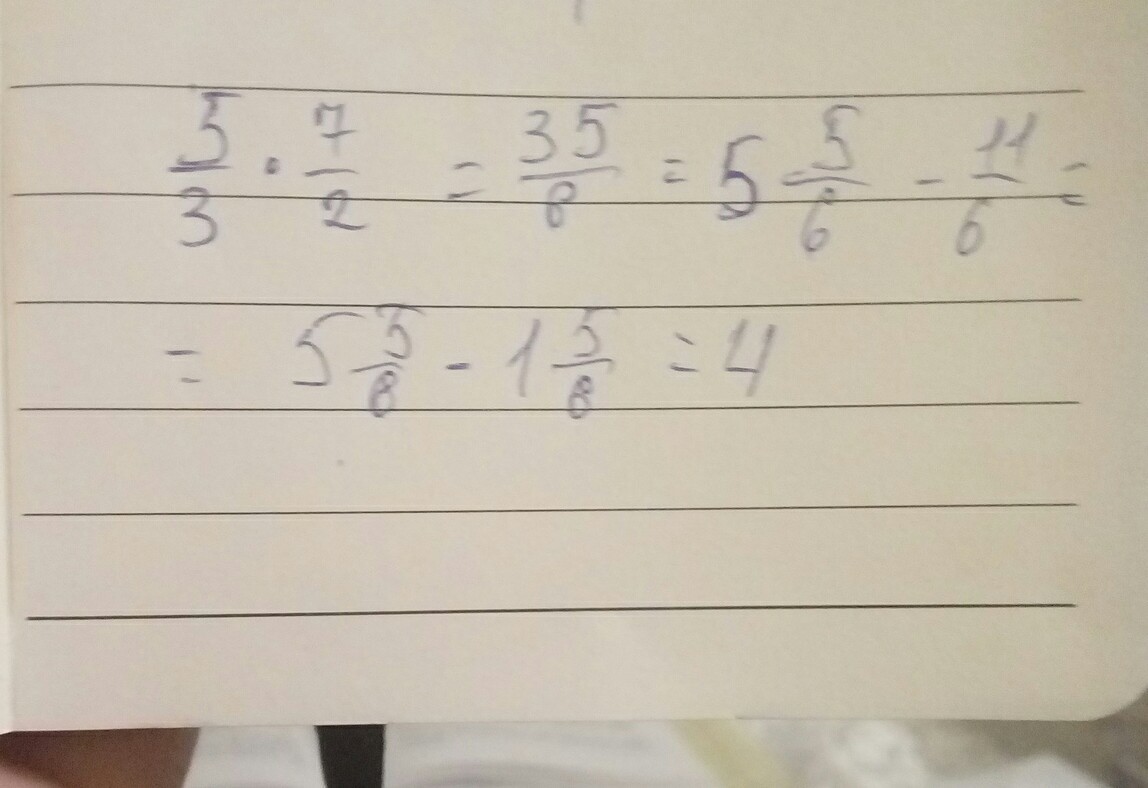 5/3 · 7/2 = 35/6 = 5 5/6 - 11/6 =
= 5 5/6 - 1 5/6 = 4